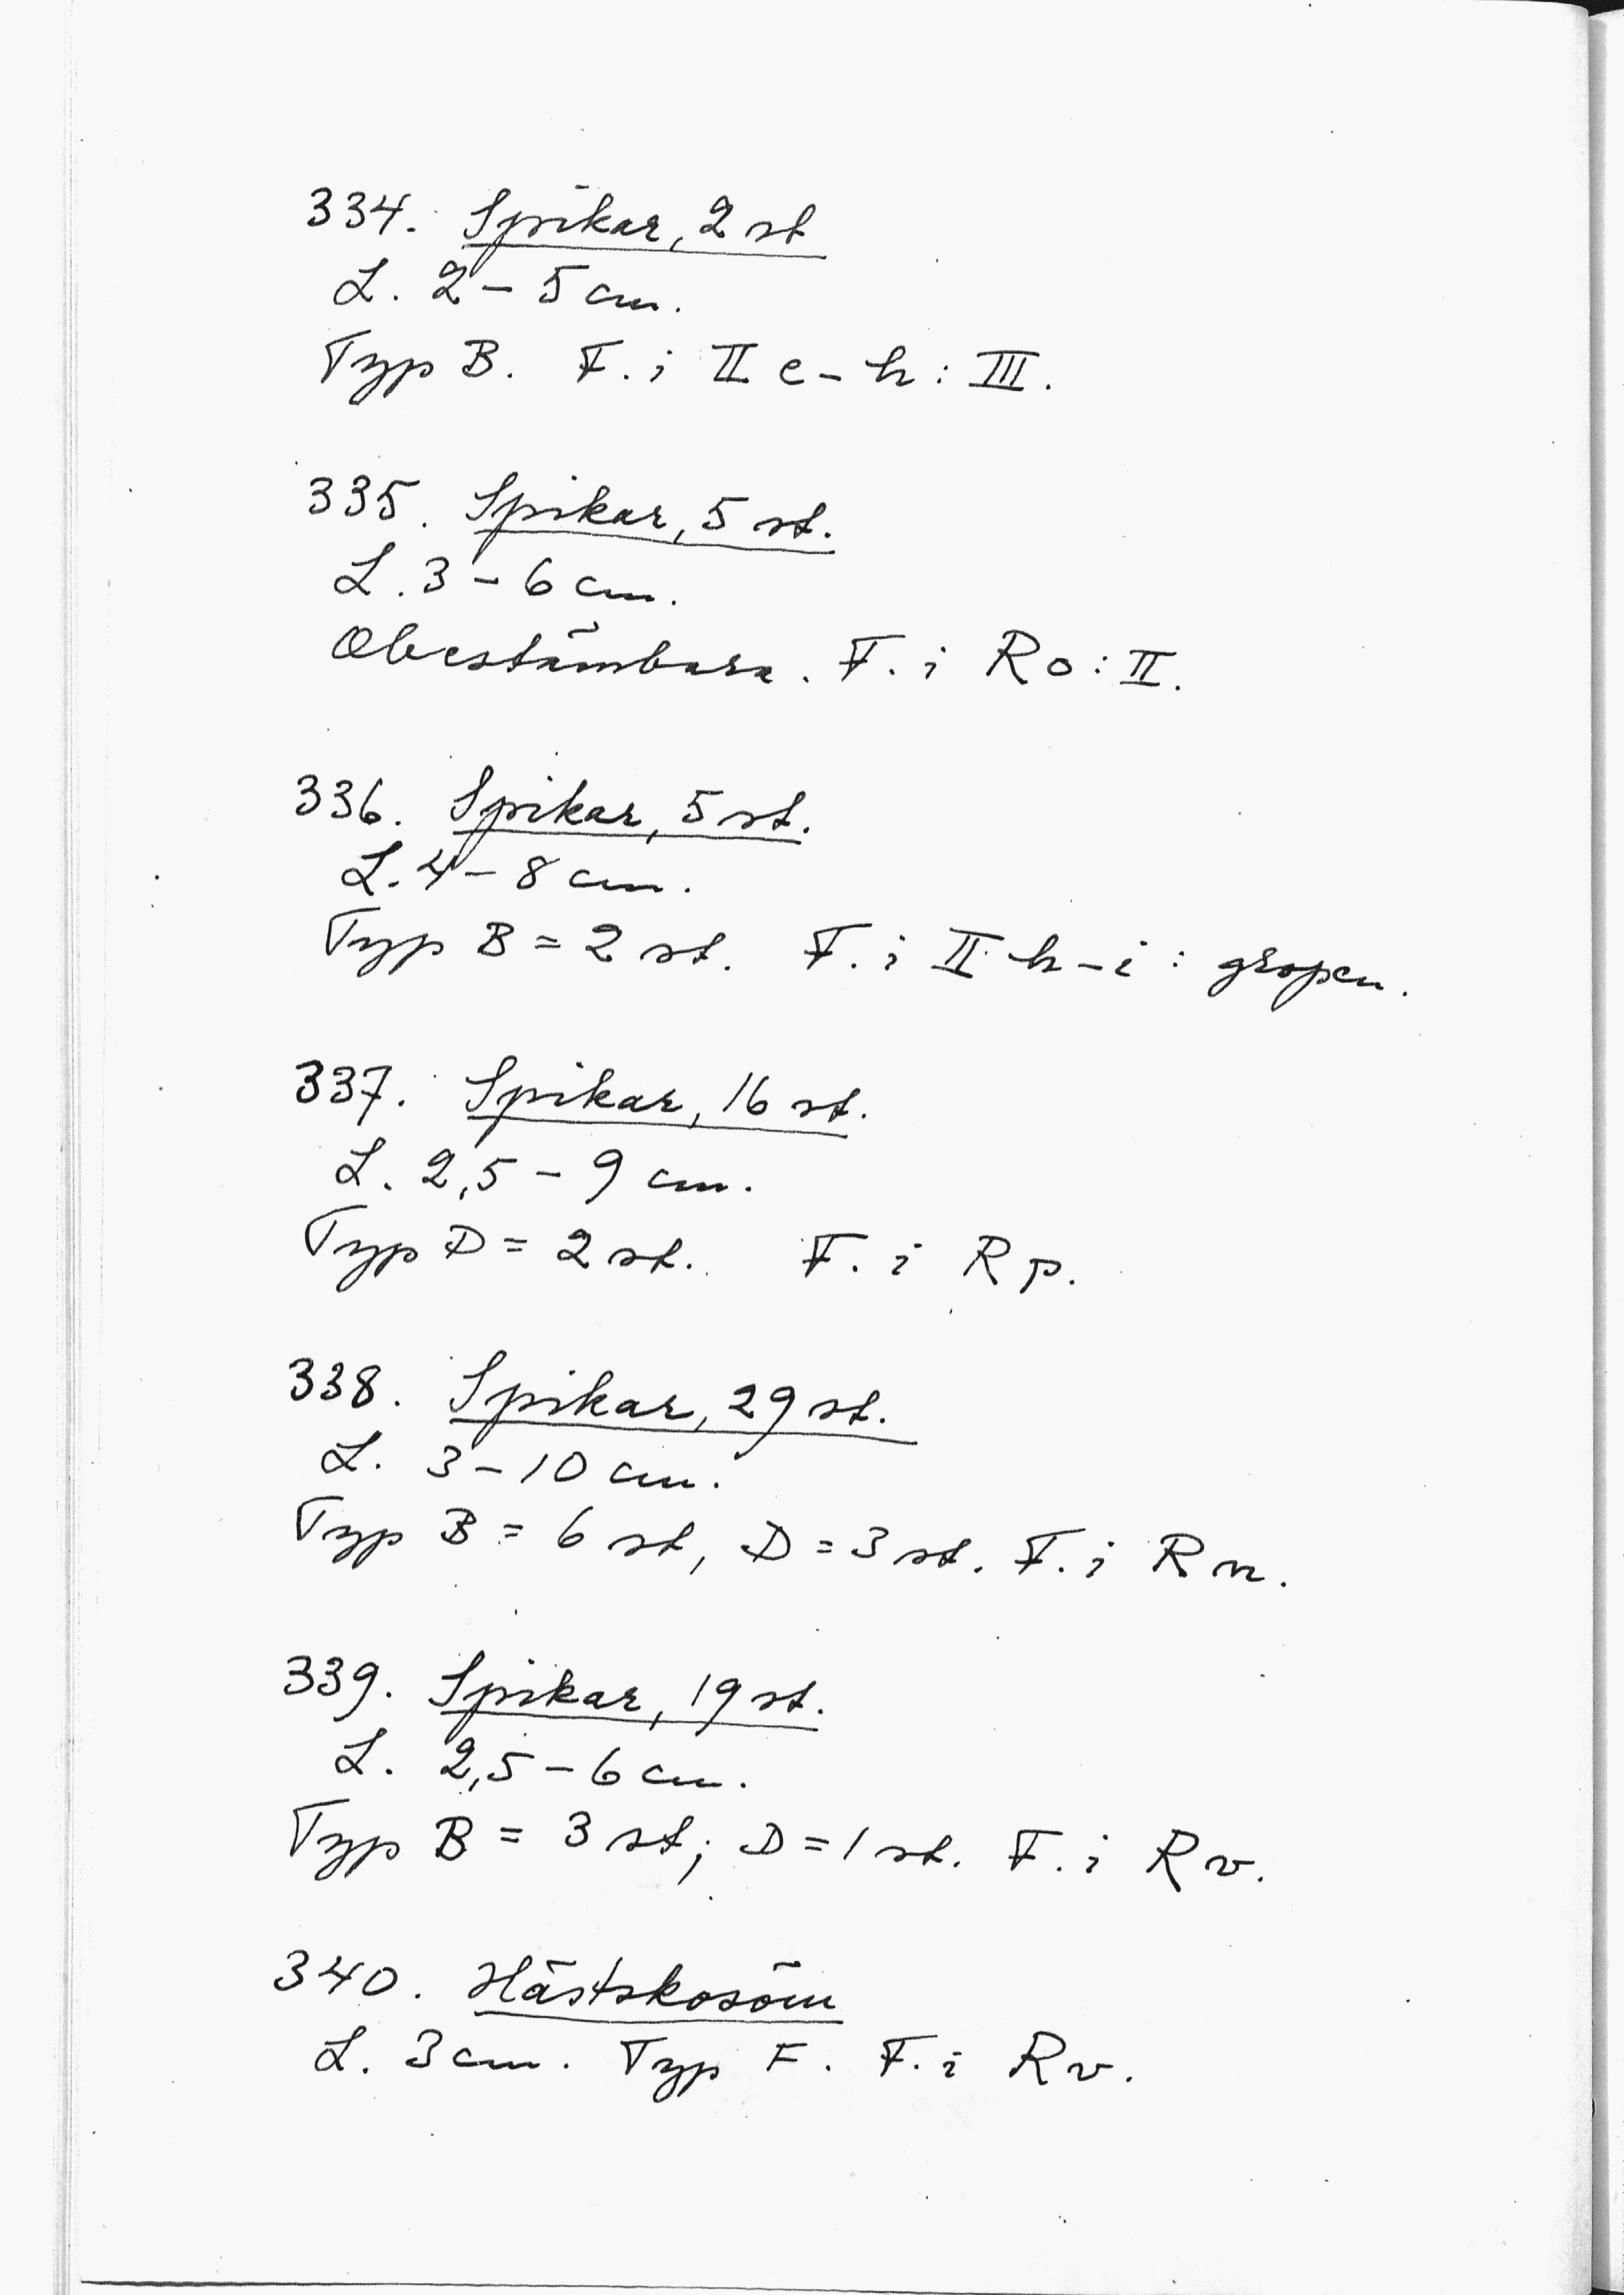 334. Spikar, 2 st
L. 2 – 5 cm.
Typ B. F. i II e – h : III.
335. Spikar, 5 st.
L. 3 – 6 cm.
Obestämbara. F. i Ro : II.
336. Spikar, 5 st.
L. 4 – 8 cm.
Typ B = 2 st. F. i II h – i : gropen.
337. Spikar, 16 st.
L. 2,5 – 9 cm.
Typ D = 2 st. F. i Rp.
338. Spikar, 29 st.
L. 3 – 10 cm.
Typ B = 6 st, D = 3 st. F. i Rn.
339. Spikar, 19 st.
L. 2,5 – 6 cm.
Typ B = 3 st; D = 1 st. F. i Rv.
340. Hästskosöm
L. 3 cm. Typ F. F. i Rv.